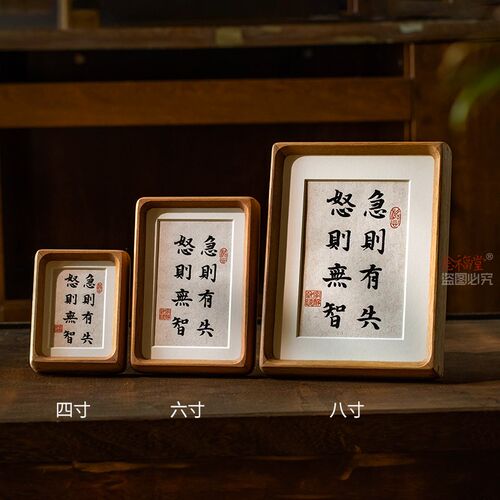 急則有失
怒則無智
急則有失
怒則無智
急則有失
怒則無智
四寸
六寸
八寸
福堂®
盗图必究